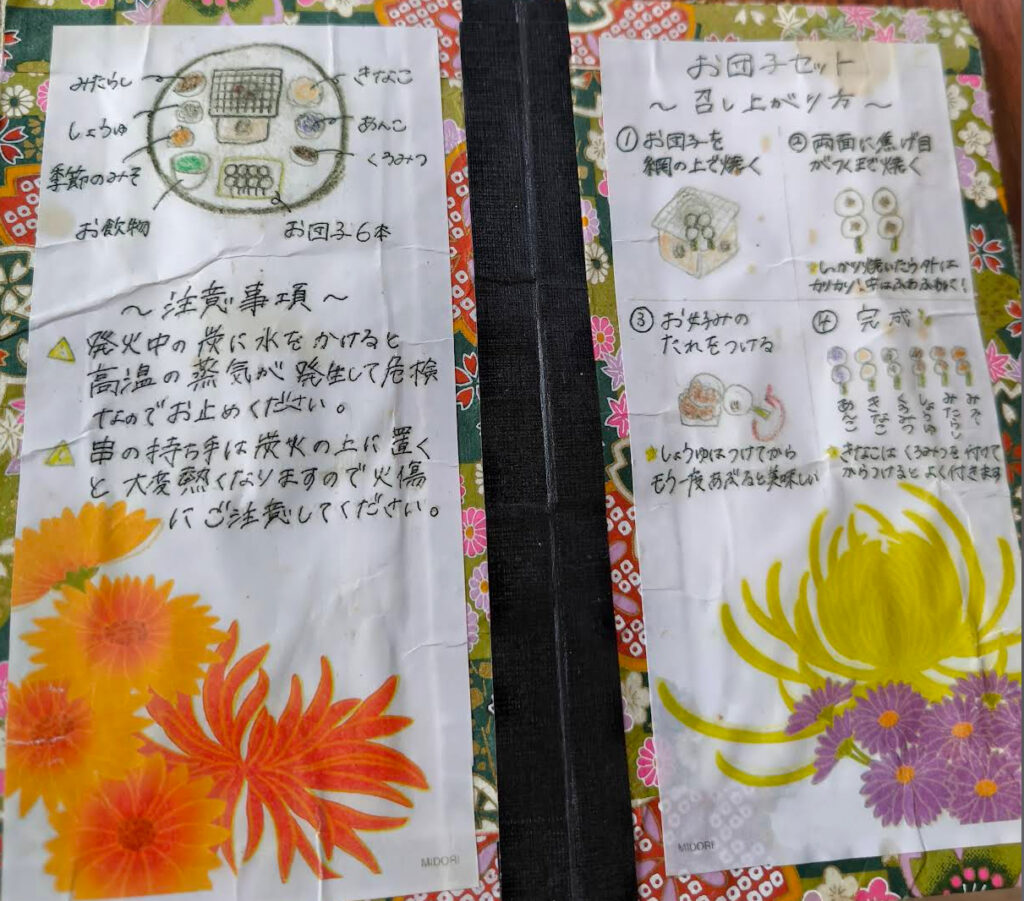 みたらし
しょうゆ
季節のみそ
お飲物
きなこ
あんこ
くるみつ
お団子6本
～注意事項～
発火中の炭に水をかけると
高温の蒸気が発生して危険
なのでお止めください。
串の持ち手は炭火の上に置く
と大変熱くなりますので火傷
にご注意してください。
MIDORI
お団子セット
～召し上がり方～
① お団子を
網の上で焼く
② 両面に焦げ目
がつくまで焼く
しっかり焼いたら外は
カリカリ!中はふわふわ!
③ お好みの
たれをつける
しょうゆはつけてから
もう一度あぶると美味しい
④ 完成
あんこ
きなこ
くるみつ
しょうゆ
みたらし
みそ
きなこはくるみつを付けて
からつけるとよく付きます
MIDORI